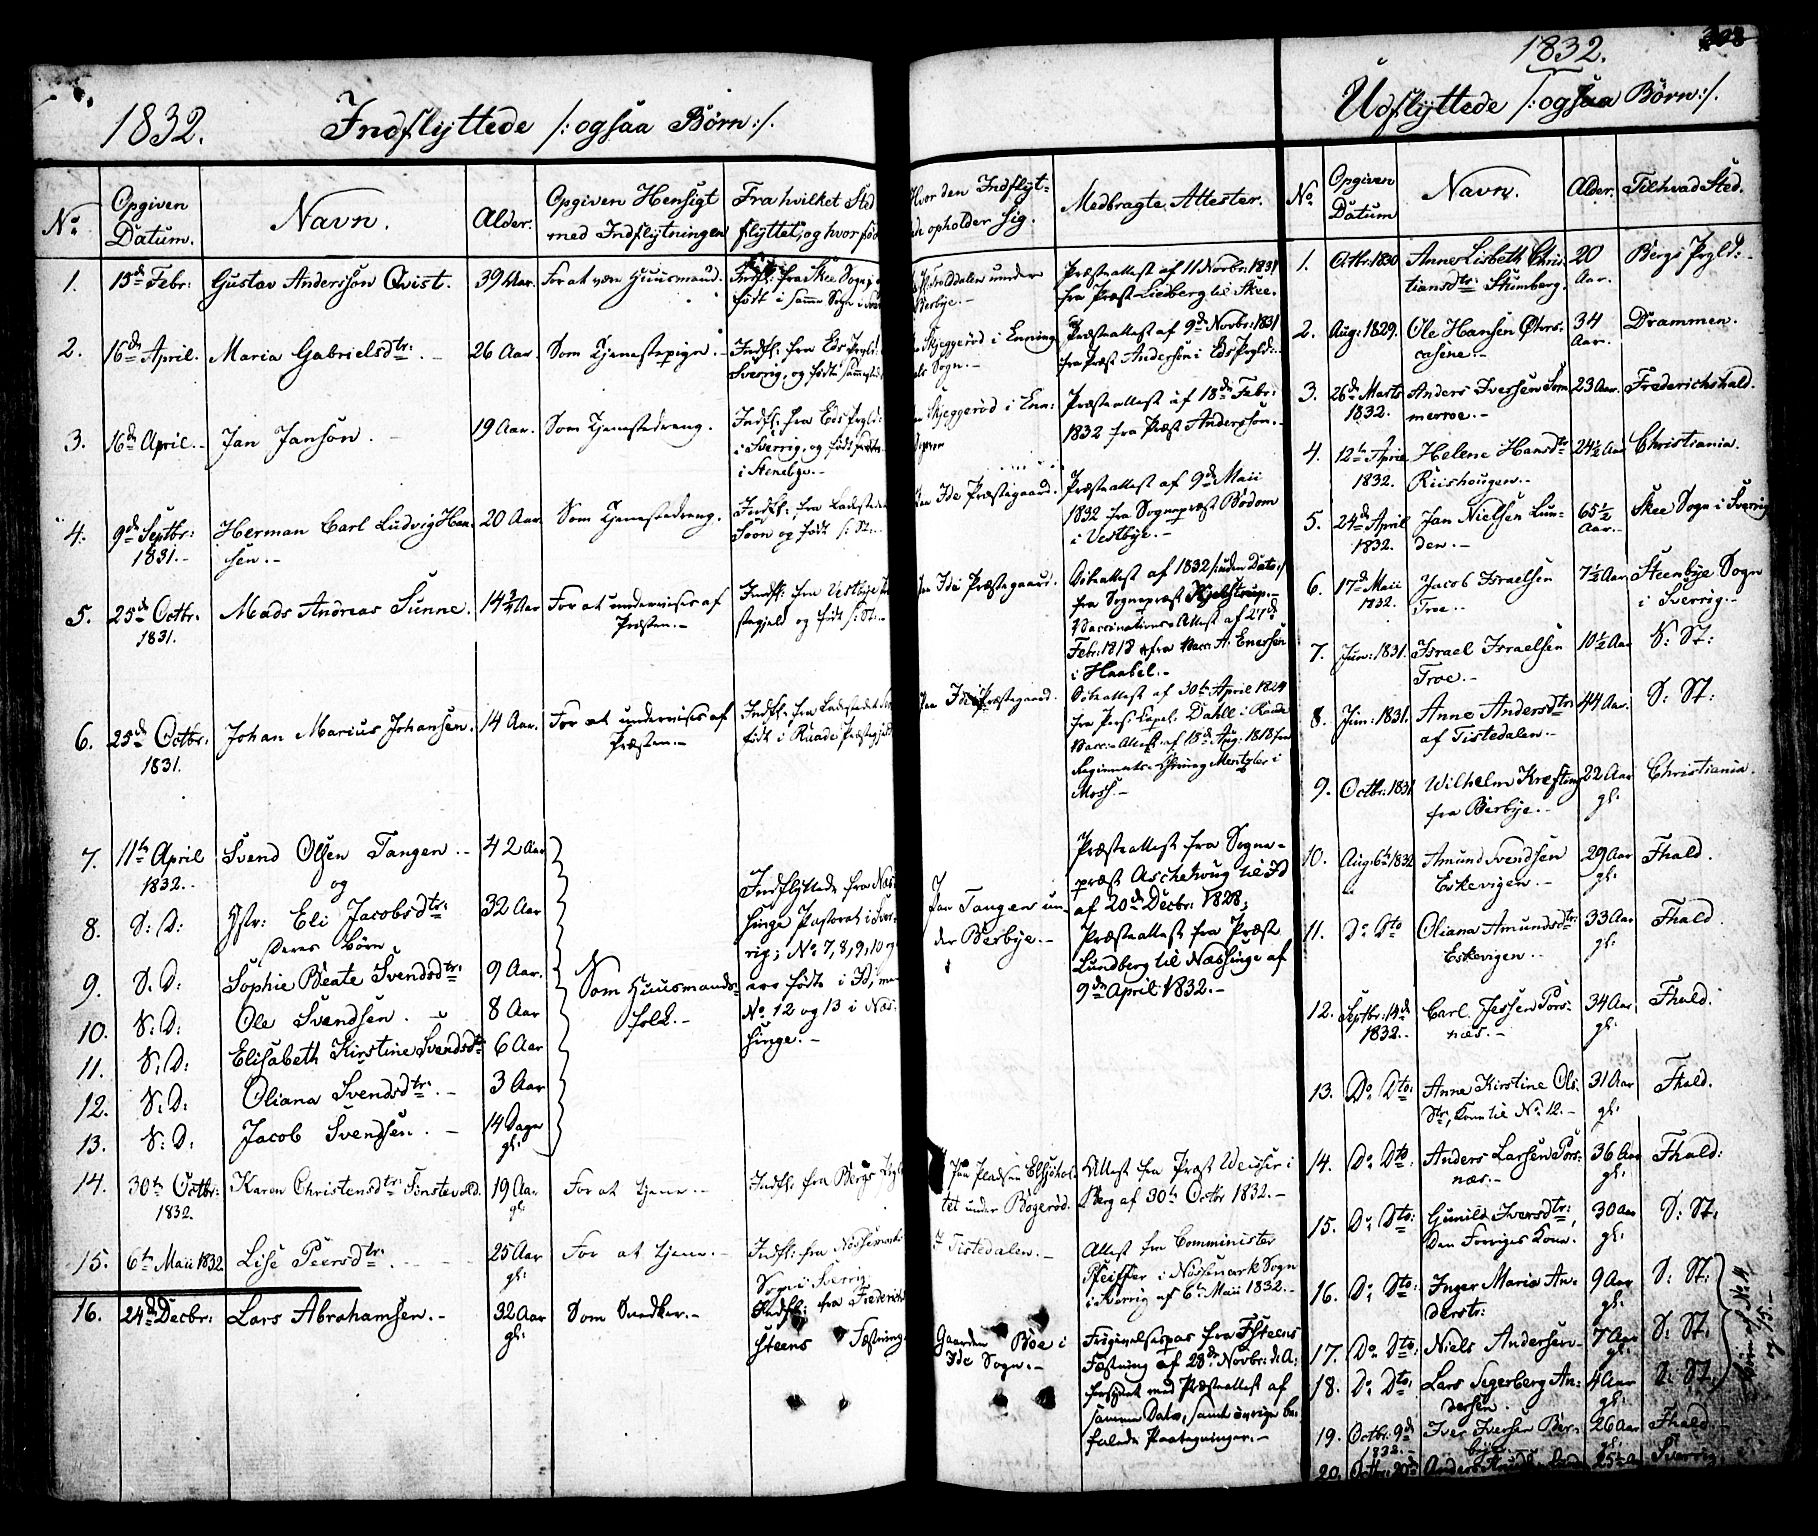 1832.
Indflyttede /: ogsaa Børn :/.
No
Opgiven Datum.
Navn.
Alder.
Opgiven Hensigt med Indflytningen
Fra hvilket Sted flyttet, og hvor fød
Hvor den Indflyt- opholder sig.
Medbragte Attester.
1. 15de Febr: Gustav Andersson Qvist. 39 Aar. For at være Huusmand. Indfl: fra Skee Sogn født i samme Sogn i
Troldalen under Berbye.- Præsteattest af 11 Novbr: 1831 fra Præst Liedberg til Skee.
2. 16de April. Maria Gabrielsdtr: - 26 Aar. Som Tjenestepige. - Indfl: fra Eds Prgld: Sverrig, og født sammested
Skjeggerød i Enning dals Sogn.- Præsteattest af 9de Novbr: 1831 fra Præst Andersen i Eds Prgld:-
3. 16de April.- Jan Janson. - 19 Aar. Som Tjenestedreng. Indfl: fra Eds Prgld: i Sverrig, og født i Stenebye.-
Skjeggerød i Enn: Præsteattest af 18de Febr: 1832 fra Præst Andersson.-
4. 9de Septbr: 1831.- Herman Carl Ludvig Han- sen.- 20 Aar. Som Tjenestedreng. Indfl: fra Ladestedet Soon og født s: St:-
Paa Ide Præstegaard. Præsteattest af 9de Maii 1832 fra Sognepræst Bodom i Vestbye.-
5. 25de Octbr: 1831. Mads Andreas Sunne. 14 3/4 Aar For at underviises af Præsten.- Indfl: fra Vestbye Præ stegjeld og født s: St:-
Paa Ide Præstegaard. Døbeattest af 1832 /:uden Dato:/ fra Sognepræst Kjelstrup.- Vaccinations-Attest af 27de Febr: 1818 fra Vacc: A. Enersen i Haabel.-
6. 25de Octbr: 1831. Johan Marius Johansen. 14 Aar. For at underviises af Præsten.- Indfl: fra Ladestedet født i Raade Præstegjeld
Paa Ide Præstegaard. Døbeattest af 30te April 1824 fra Pers: Capel: Dahll i Raade Vacc:- Attest af 18de Aug: 1818 fra Regiments-Chirurg Mentzler i Moss.-
7. 11te April 1832.- Svend Olsen Tangen.- 42 Aar
og
8. D: D: Hstr: Eli Jacobsdtr: 32 Aar
Deres Børn
9. D: D: Sophie Beate Svendsdtr: 9 Aar.
10. D: D: Ole Svendsen. 8 Aar
11. D: D: Elisabeth Kirstine Svendsdtr 6 Aar
12. D: D: Oliana Svendsdtr:- 3 Aar
13. D: D: Jacob Svendsen.- 14 Dage gl:
Som Huusmands- folk.-
Indflyttede fra Næs- singe Pastorat i Sver- rig; No 7, 8, 9, 10 og ere fødte i Id, men No 12 og 13 i Næs- singe.-
Paa Tangen un- der Berbye.-
Præsteattest fra Sogne- præst Aschehoug til Id af 20de Decbr: 1828; Præsteattest fra Præst Lundberg til Næssinge af 9de April 1832.-
14. 30te Octbr: 1832. Karen Christensdtr: Finstevold. 19 Aar gl: For at tjene.- Indfl: fra Bergs Prgld
Paa Pladsen under Bøgerød. Attest fra Præst Weisser i Berg af 30te Octbr 1832.-
15. 6te Maii 1832 Lise Peersdtr: - 25 Aar gl: For at tjene.- Indfl: fra Nössemark Sogn i Sverrig
I Tistedalen.- Attest fra Comminister Pfeiffer i Nössemark Sogn i Sverrig af 6te Maii 1832.-
16. 24de Decbr: Lars Abrahamsen.- 32 Aar gl: Som Snedker.- Indfl: fra Frederich- steens Fæstning.
Gaarden Bøe i Ide Sogn.- Frigivelsespas fra Fsteens Fæstning af 28de Novbr: d: A: forsynet med Præsteattest af samme Dato, samt øvrige be- falede Paategninger.-
1832.
308
Udflyttede /: ogsaa Børn :/.
No
Opgiven Datum
Navn.
Alder.
Til hvad Sted.
1. Octbr: 1830 Anne Lisbeth Chris- tiansdtr: Stumberg. 20 Aar. Bergs Prgld:-
2. Aug: 1829. Ole Hansen casene.- 34 Aar. Drammen.
3. 26de Marts 1832. Anders Iversen Som- merroe.- 23 Aar. Frederichshald.
4. 12te April 1832. Helene Hansdtr Riishougen.- 24 1/2 Aar Christiania.
5. 24de April 1832. Jan Nielsen Lun- den.- 65 1/2 Aar.- Skee Sogn i Sverrig
6. 17de Maii 1832. Jacob Israelsen Troe.- 7 1/2 Aar Steenbye Sogn i Sverrig.-
7. Juni: 1831. Israel Israelsen Troe.- 10 1/2 Aar D: St:
8. Juni: 1831. Anne Andersdtr: af Tistedalen.- 44 Aar. D: St:
9. Octbr: 1831 Wilhelm Krefting fra Berbye.- 22 Aar gl: Christiania.
10. Aug: 6te 1832 Amund Svendsen Eskevigen.- 29 Aar gl: Fhald.
11. Do Dto Oliana Amundsdtr: Eskevigen.- 33 Aar gl: Fhald.
12. Septbr: 14de 1832.- Carl Jessen Pors- næs.- 34 Aar gl: Fhald.
13. Do Dto: Anne Kirstine Ols- Dtr, Kone til No 12.- 31 Aar gl: Fhald.
14. Do Dto: Anders Larsen Pors- næs.- 36 Aar gl: Fhald:
15. Do Dto: Gunild Iversdtr:, Den Forriges Kone. 30 Aar gl: D: St:
16. Do Dto: Inger Maria An- derstr: 9 Aar gl: D: St:
17. Do Dto: Niels Andersen- 7 Aar gl: D: St:
18. Do Dto: Lars Segerberg An- dersen. 4 Aar gl: D: St:
Børn af No 14 og 15.-
19. Octbr: 9de 1832.- Iver Iversen Ber- bye. 26 Aar gl: Fhald.-
20. Octbr: 20de Anders 25 1/2 Sverrig